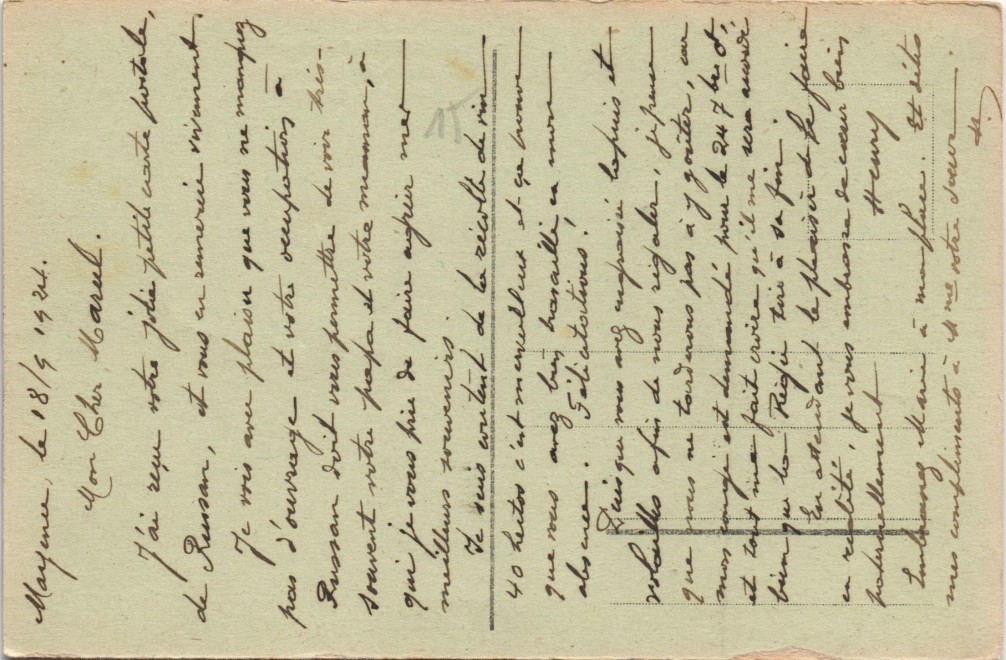 Mayence, le 18/9 1924.
Mon Cher Marcel.
J'ai reçu votre jolie petite carte postale,
de Russan, et vous en remercie vivement.
Je vois avec plaisir que vous ne manquez
pas d'ouvrage et votre occupations à
Russan doit vous permettre de voir très-
souvent votre papa et votre maman, à
qui je vous prie de faire agréer mes
meilleurs souvenirs.
Je suis content de la récolte de vin
40 hectos c'est merveilleux et ça prouve
que vous avez bien travaillé, en mon
absence. Félicitations!
Puisque vous avez engraissé lapins et
volailles afin de nous régaler, je pense
que nous ne tarderons pas à y goûter, car
mon congé est demandé pour le 24 7bre et,
et tout me fait croire qu'il me sera accordé
bien que la tire à sa fin.
En attendant le plaisir de le faire
en réalité, je vous embrasse de cœur bien
paternellement Henry
Embrassez Marie à ma place. Et dites
mes compliments à Mme votre sœur.
H.
15